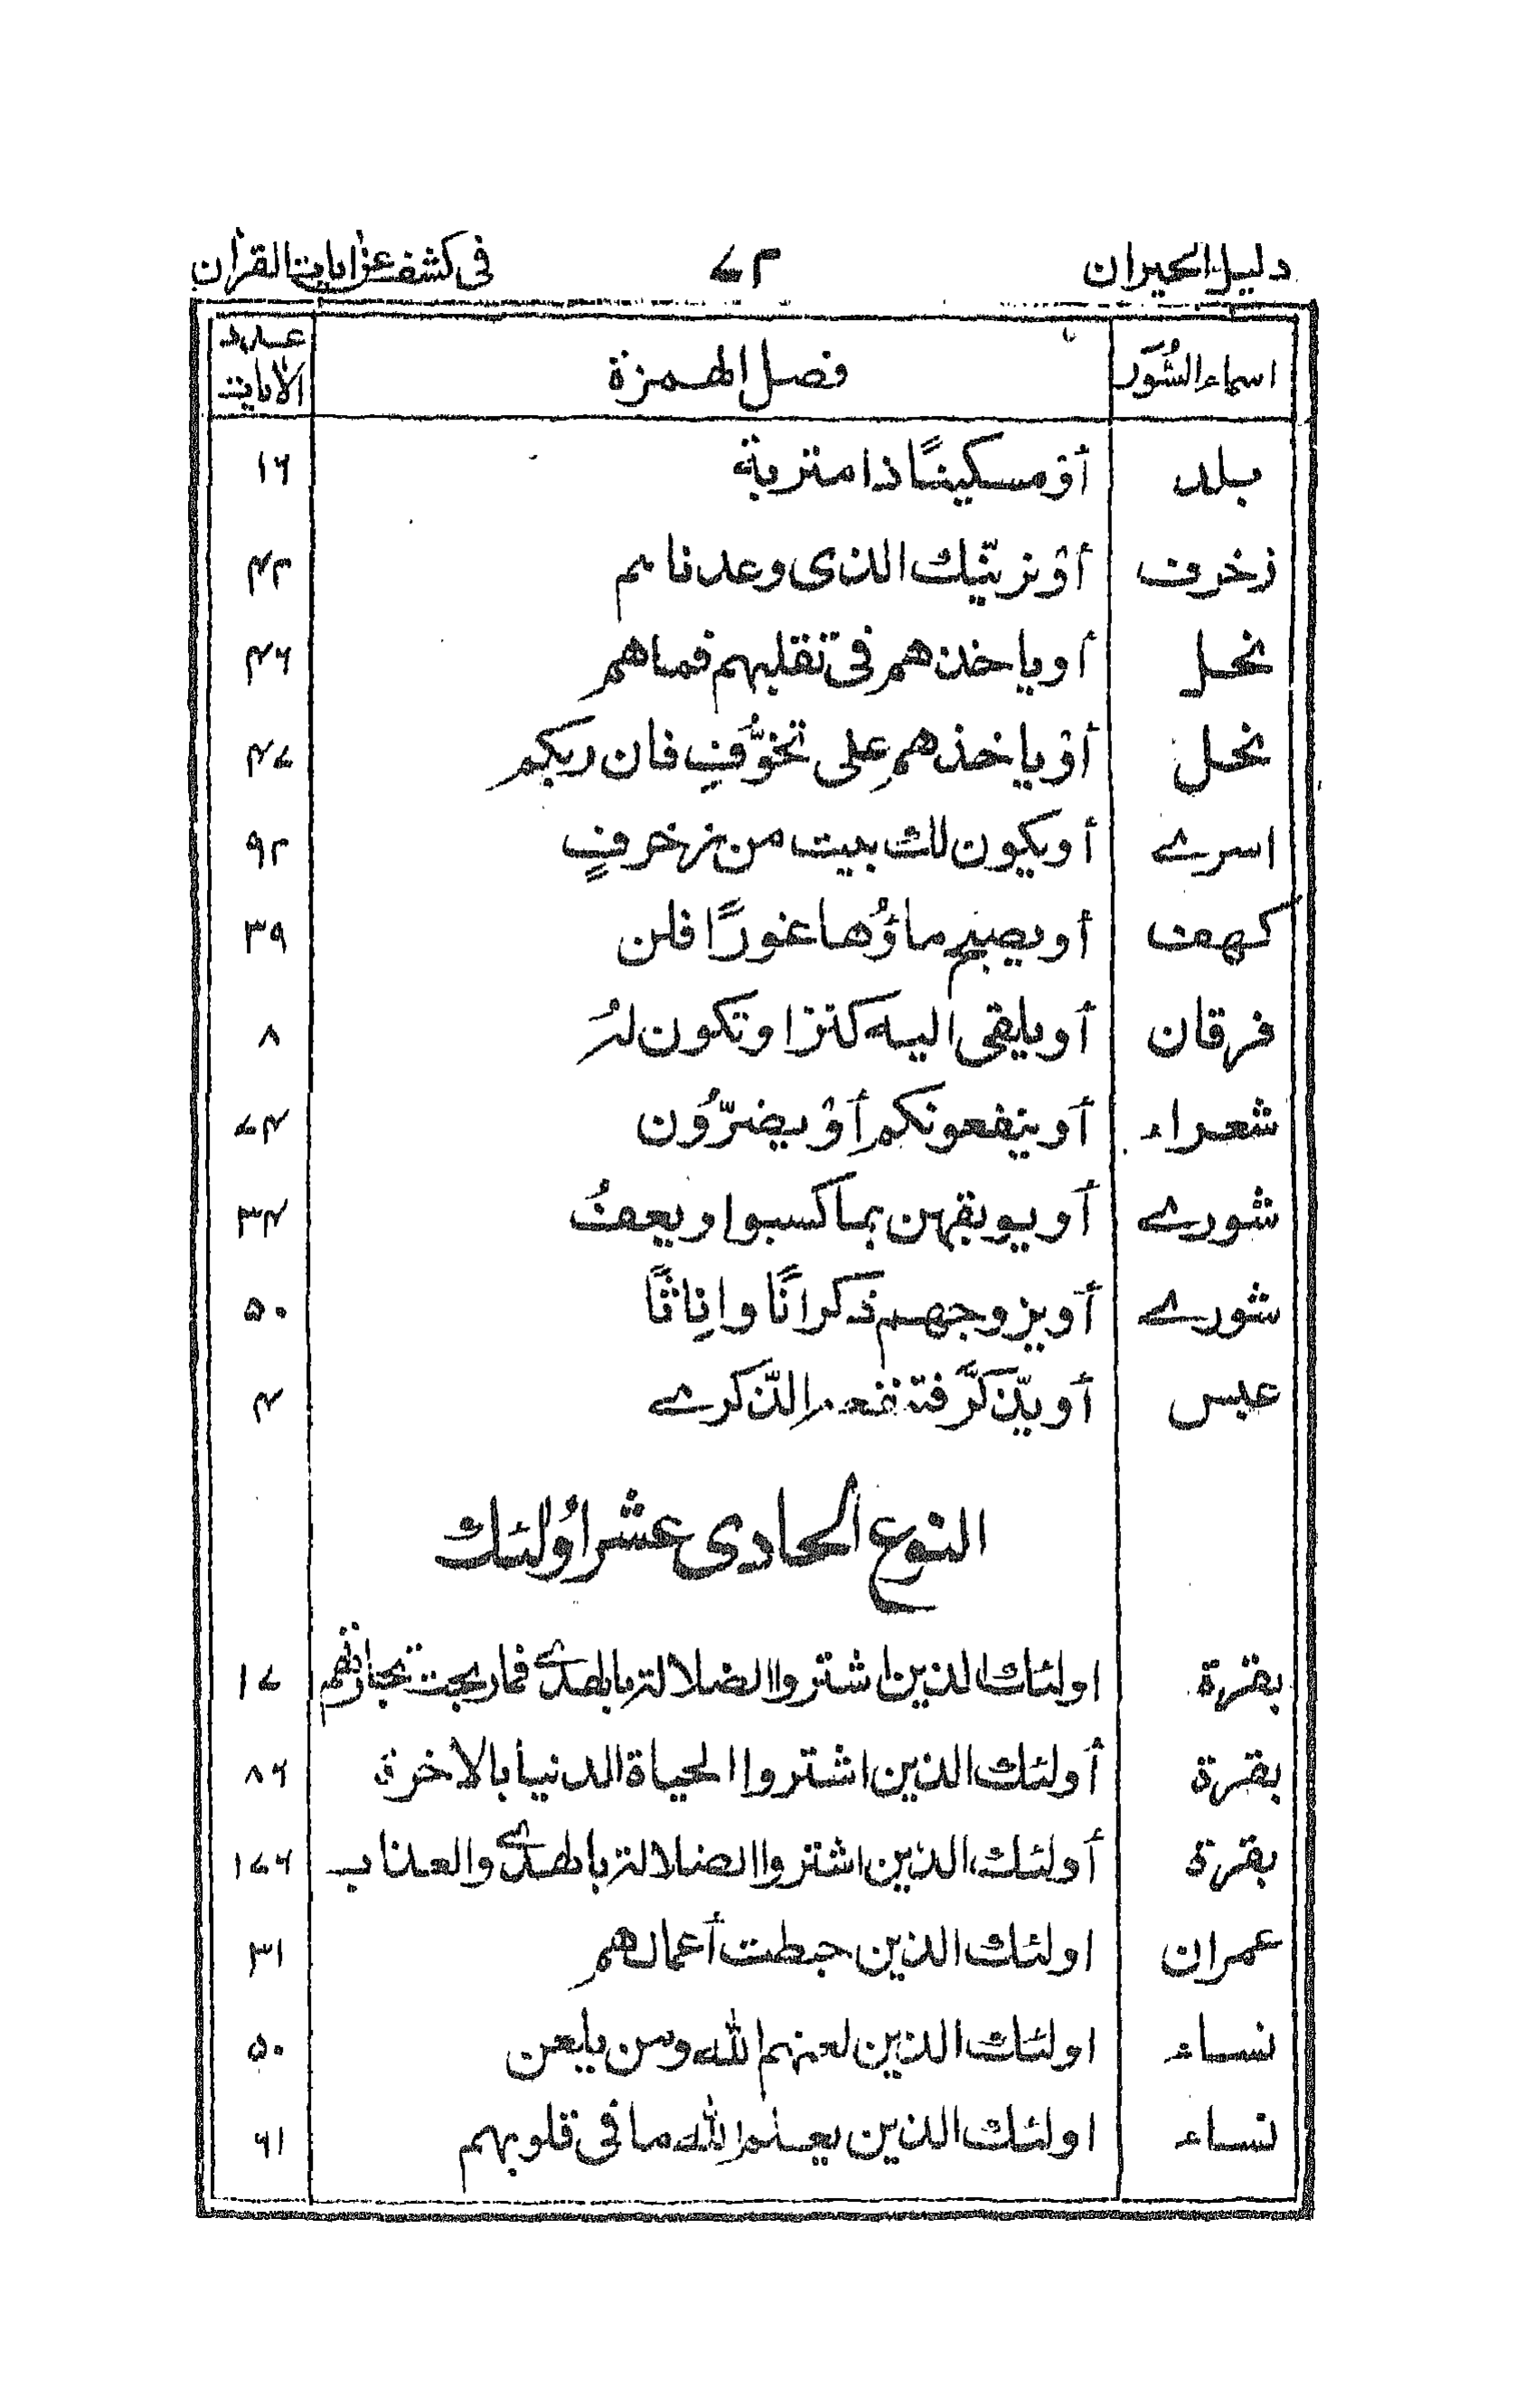 دليل الحيران ٧٢ فى كشف عن ايات القرأن
اسماء السُّوَر فصل الهمزة عدد الأيات
بلد أوْ مسكينًا ذا متربة ١٦
زخرف أوْ نرينّك الذى وعدناهم ٤٢
نحل أو ياخذهم فى تقلبهم فما هم ٤٦
نحل أوْ ياخذهم على تخوُّفٍ فان ربكم ٤٧
اسرے أو يكون لك بيت من زخرفٍ ٩٣
كهف أو يصبح ماؤُها غورًا فلن ٣٩
فرقان أو يلقى اليه كنز او تكون لهُ ٨
شعراء أو ينفعونكم أوْ يضرّوُن ٧٤
شورے أو يوبقهن بما كسبوا ويعفُ ٣٤
شورے أو يزوجهم ذكرانًا وانِاثًا ٥٠
عبس أو يذّكرَّ فتنفعه الذّكرے ٤
النوع الحادى عشر اوُلئك
بقرة اولئك الذين اشتروا الضلالة بالهدى فما ربحت تجارتهم ١٧
بقرة أولئك الذين اشتروا الحياة الدنيا بالاخرة ٨٦
بقرة أولئك الذين اشتروا الضلالة بالهدى والعذاب ١٧٦
عمران اولئك الذين حبطت أعمالهم ٣١
نساء اولئك الذين لعنهم الله ومن يلعن ٥٠
نساء اولئك الذين يعلم الله ما فى قلوبهم ٦١